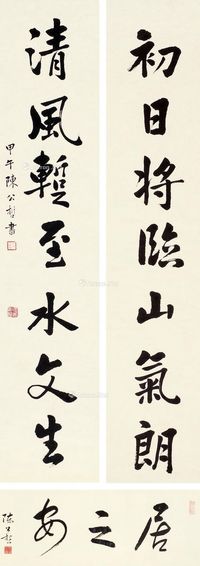 初日将臨山氣朗
清風暫至水文生
甲午陳公哲書
居之安
陳公哲